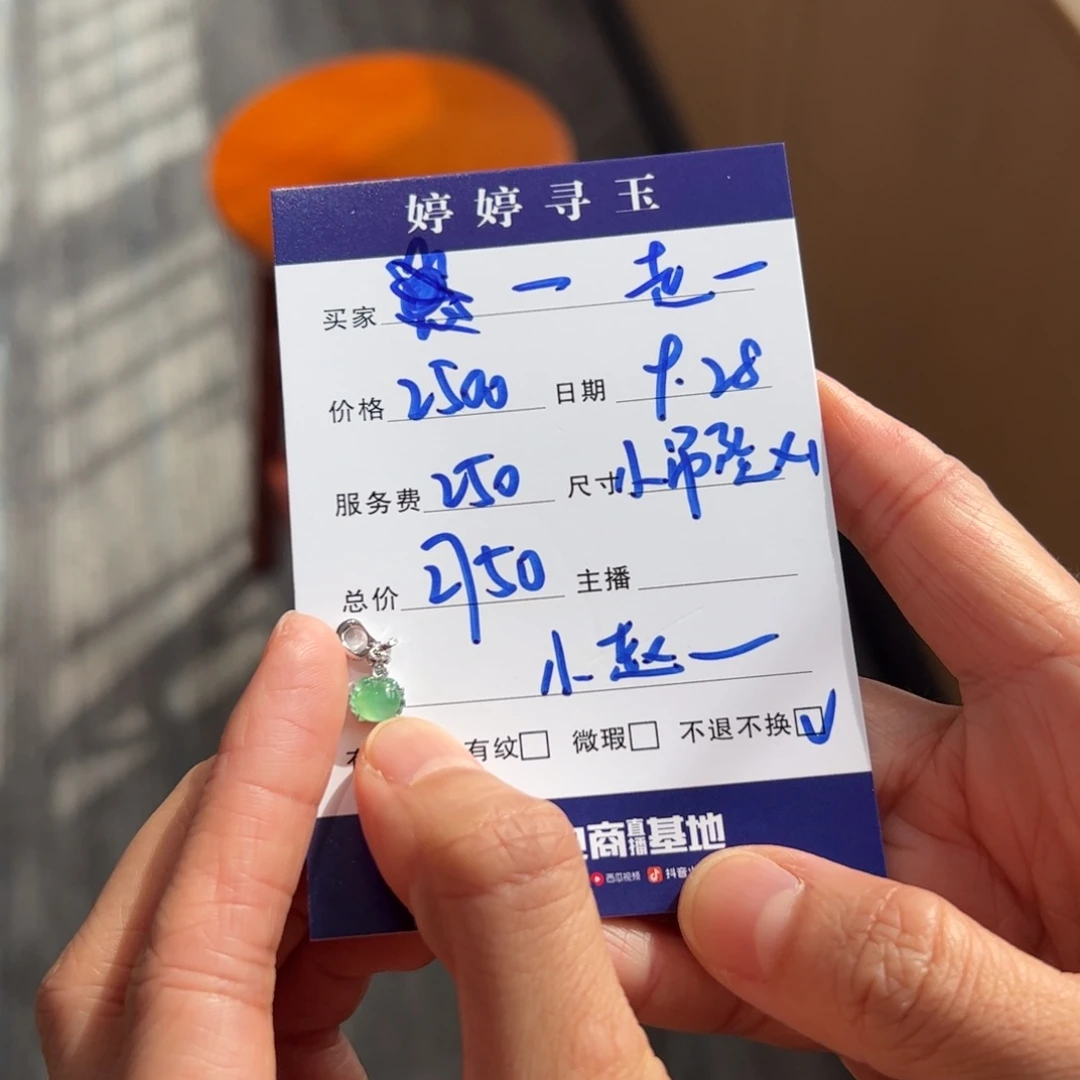 婷婷寻玉
买家 一 赵一
价格 2500 日期 9.28
服务费 250 尺寸 小吊坠x1
总价 2750 主播
小赵一
有纹□ 微瑕□ 不退不换☑
商直播基地
西瓜视频 抖音